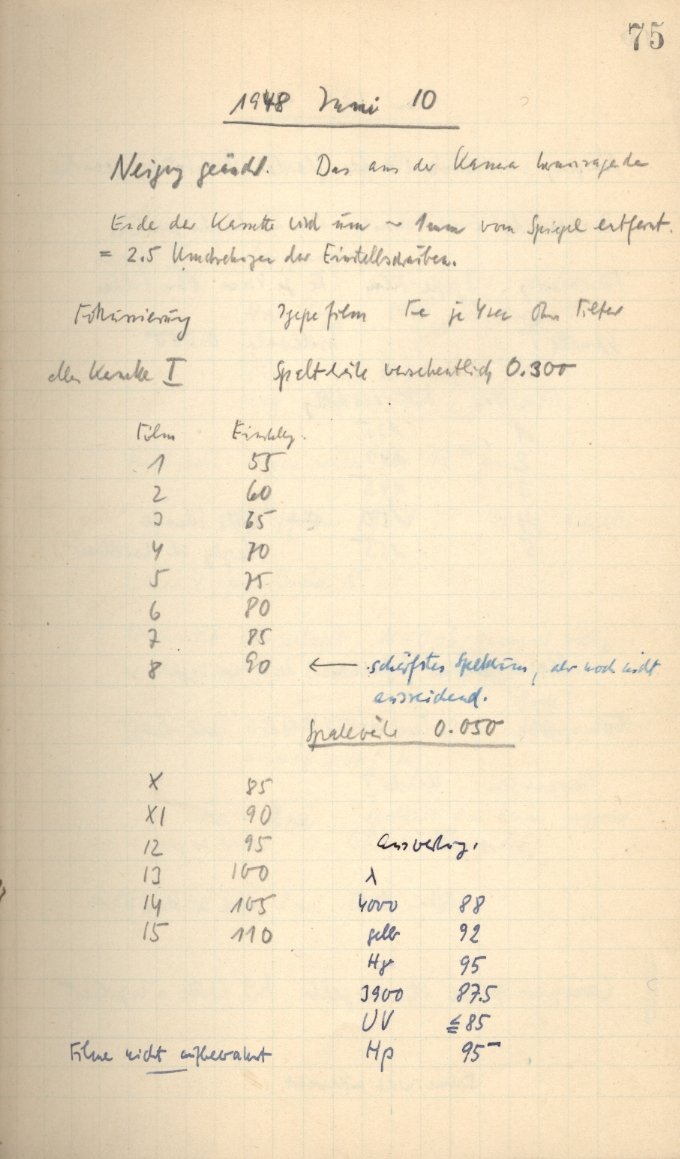 75
1948 Juni 10
Neigung geändt. Das aus der Kamera herausragende
Ende der Kassette wird um ~ 1mm vom Spiegel entfernt.
= 2.5 Umdrehungen der Einstellschrauben.
Fokussierung film Fe je 4 sec ohne Filter
Kassette I Spaltweite versehentlich 0.300
Film Einstellg.
1 55
2 60
3 65
4 70
5 75
6 80
7 85
8 90 ← schärfstes Spektrum, aber noch nicht
ausreichend.
Spaltweite 0.050
X 85
XI 90
12 95
13 100
14 105
15 110
Auswertung.
λ
4000 88
gelb 92
95
3900 87.5
UV ≦ 85
Hβ 95
Filme nicht aufbewahrt